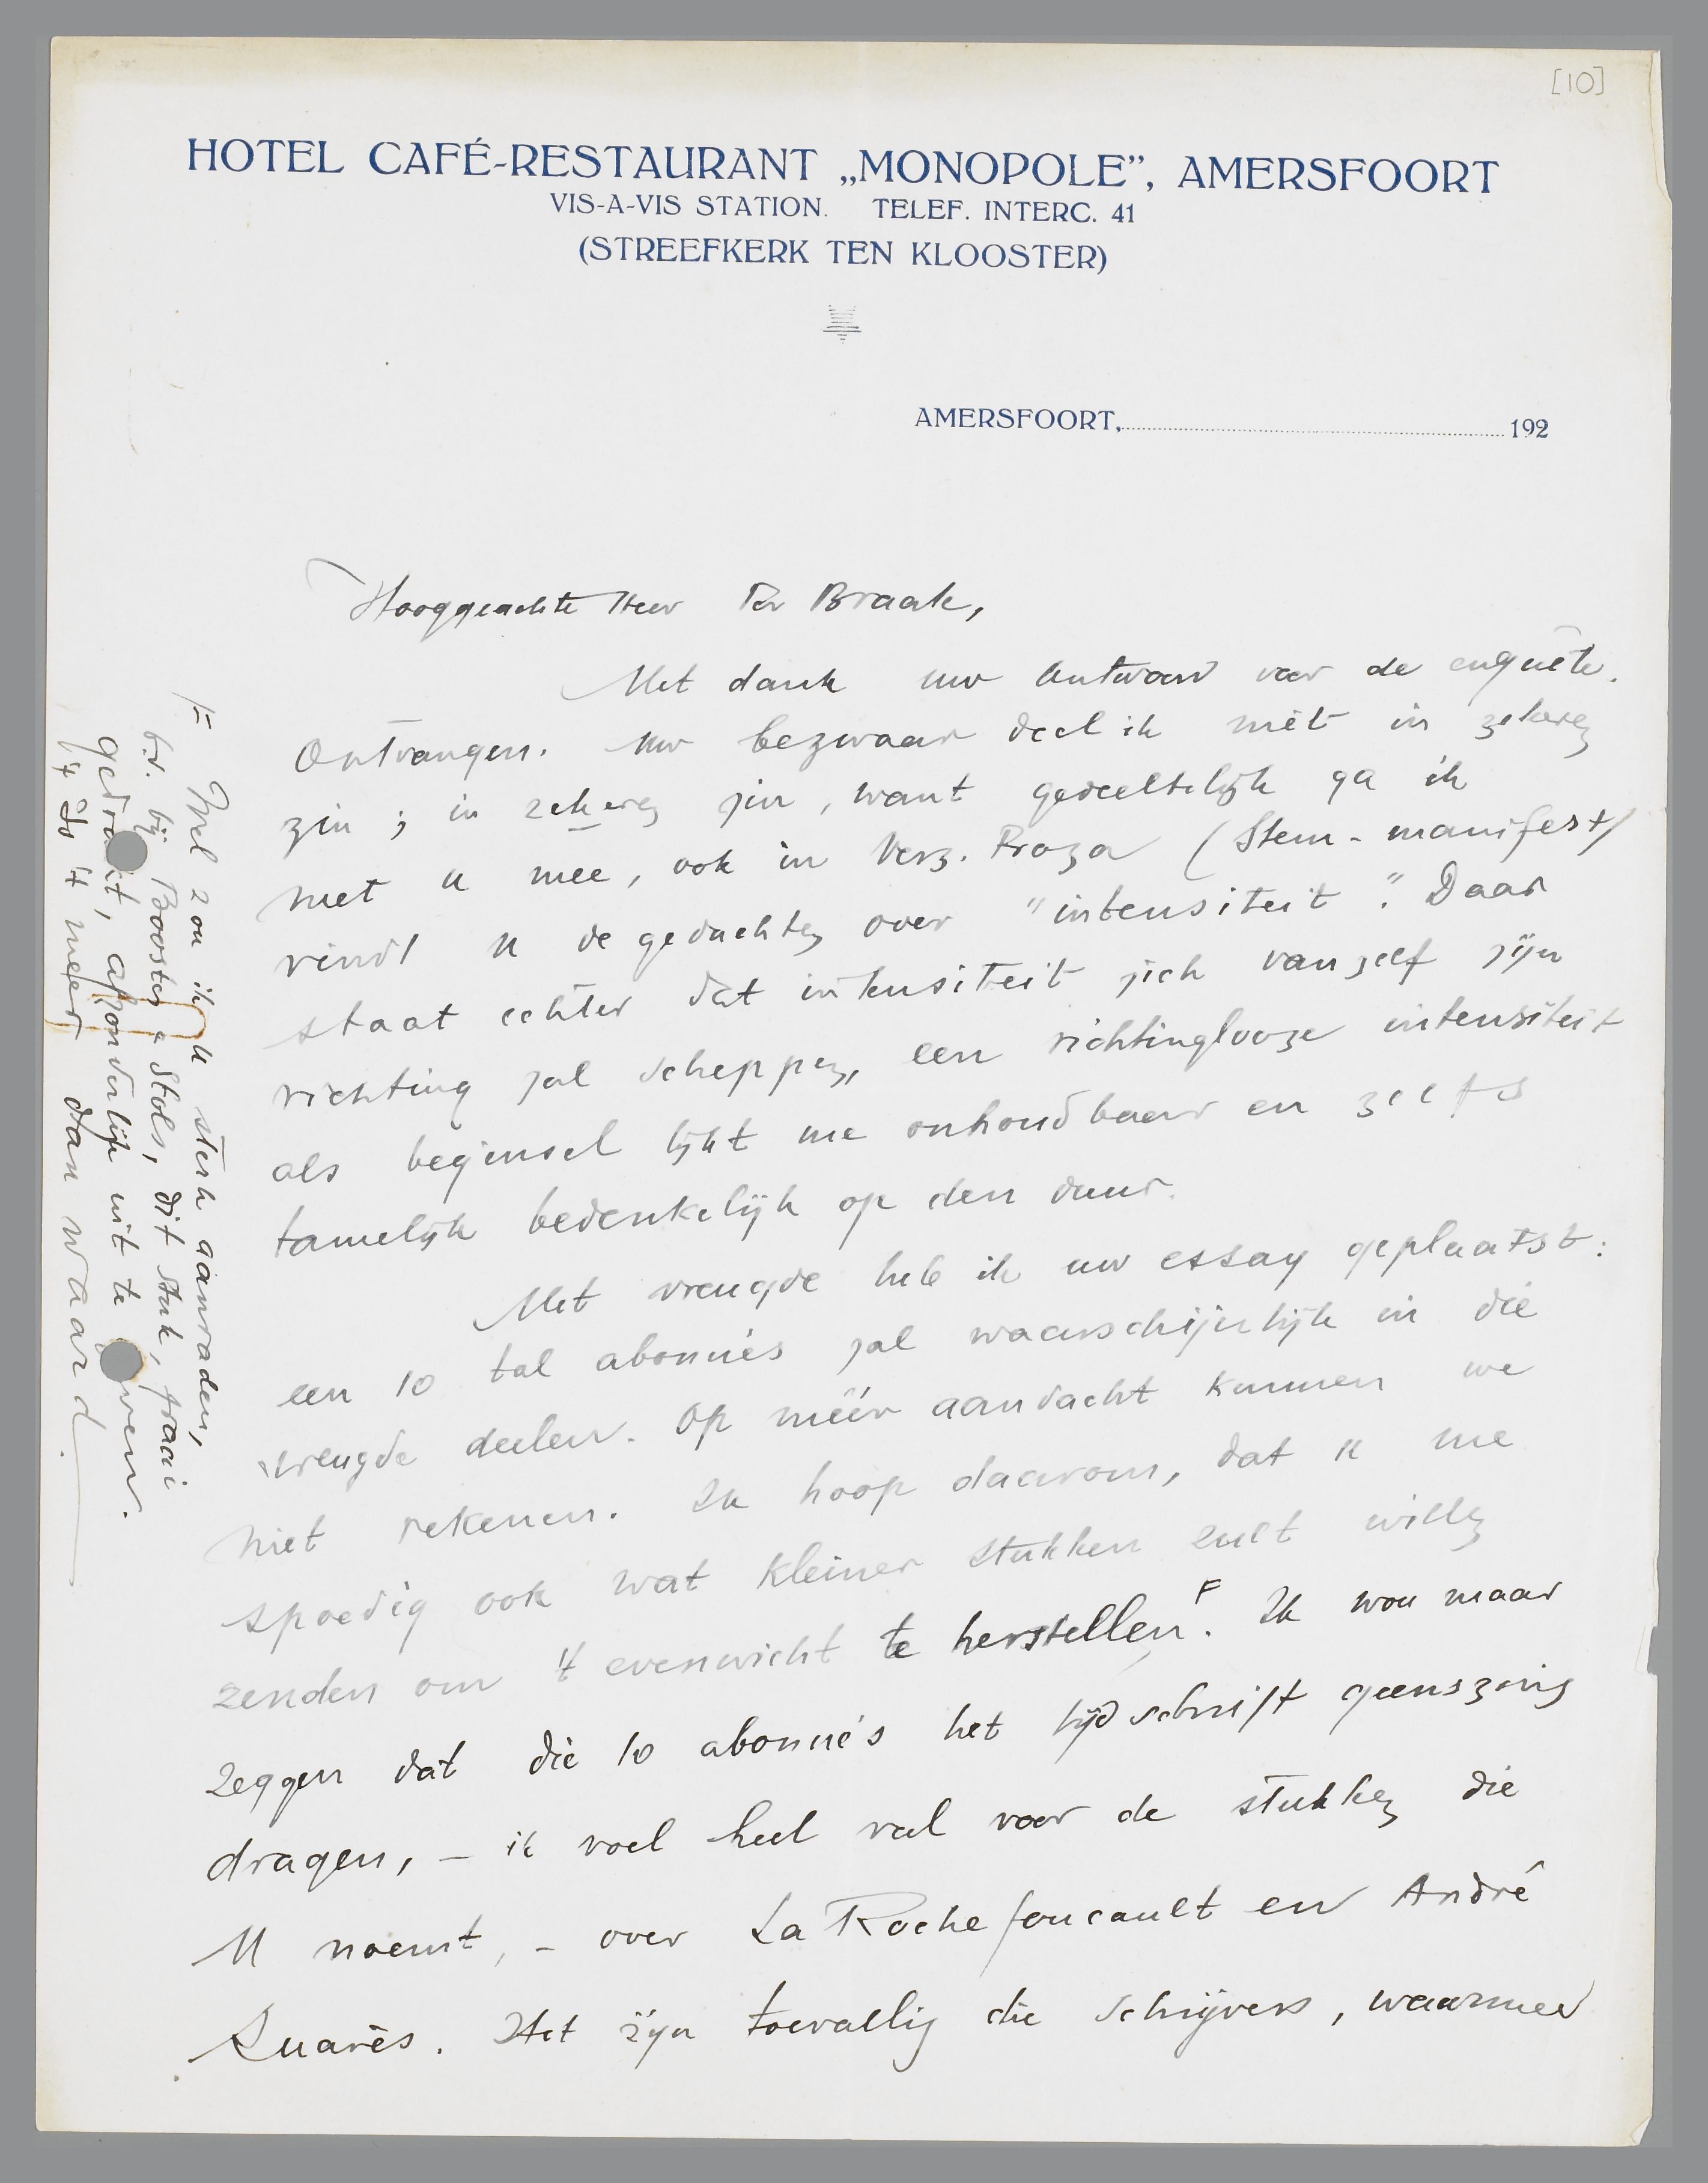 [10]
HOTEL CAFÉ-RESTAURANT „MONOPOLE”, AMERSFOORT
VIS-A-VIS STATION. TELEF. INTERC. 41
(STREEFKERK TEN KLOOSTER)
AMERSFOORT, 192
Hooggeachte Heer Ter Braak,
Met dank uw antwoord voor de enquête
ontvangen. Uw bezwaar deel ik niet in zekeren
zin; in zekeren zin, want gedeeltelijk ga ik
met u mee, ook in Verz. Proza (Stem-manifest)
vindt u de gedachten over "intensiteit". Daar
staat echter dat intensiteit zich vanzelf zijn
richting zal scheppen, een richtinglooze intensiteit
als beginsel lijkt me onhoudbaar en zelfs
tamelijk bedenkelijk op den duur.
Met vreugde heb ik uw essay geplaatst:
een 10 tal abonné's zal waarschijnlijk in die
vreugde deelen. Op méér aandacht kunnen we
niet rekenen. Ik hoop daarom, dat u me
spoedig ook wat kleiner stukken zult willen
zenden om 't evenwicht te herstellen.F Ik wou maar
zeggen dat die 10 abonné's het tijdschrift geenszins
dragen, – ik voel heel veel voor de stukken die
U noemt, – over La Rochefoucault en André
Suarès. Het zijn toevallig die schrijvers, waarmee
F Wel zou ik u sterk aanraden,
b.v. bij Boosten & Stols, dit stuk, fraai
gedrukt, afzonderlijk uit te geven.
't Is 't meer dan waard.